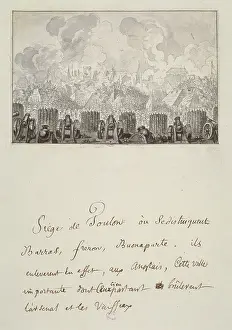 Siège de Toulon où se distinguent
Barras, freron, Buonaparte. ils
enleverent en effet, aux Anglais, Cette ville
importante dont en partant brûlerent
l'arsenal et les Vaisseaux